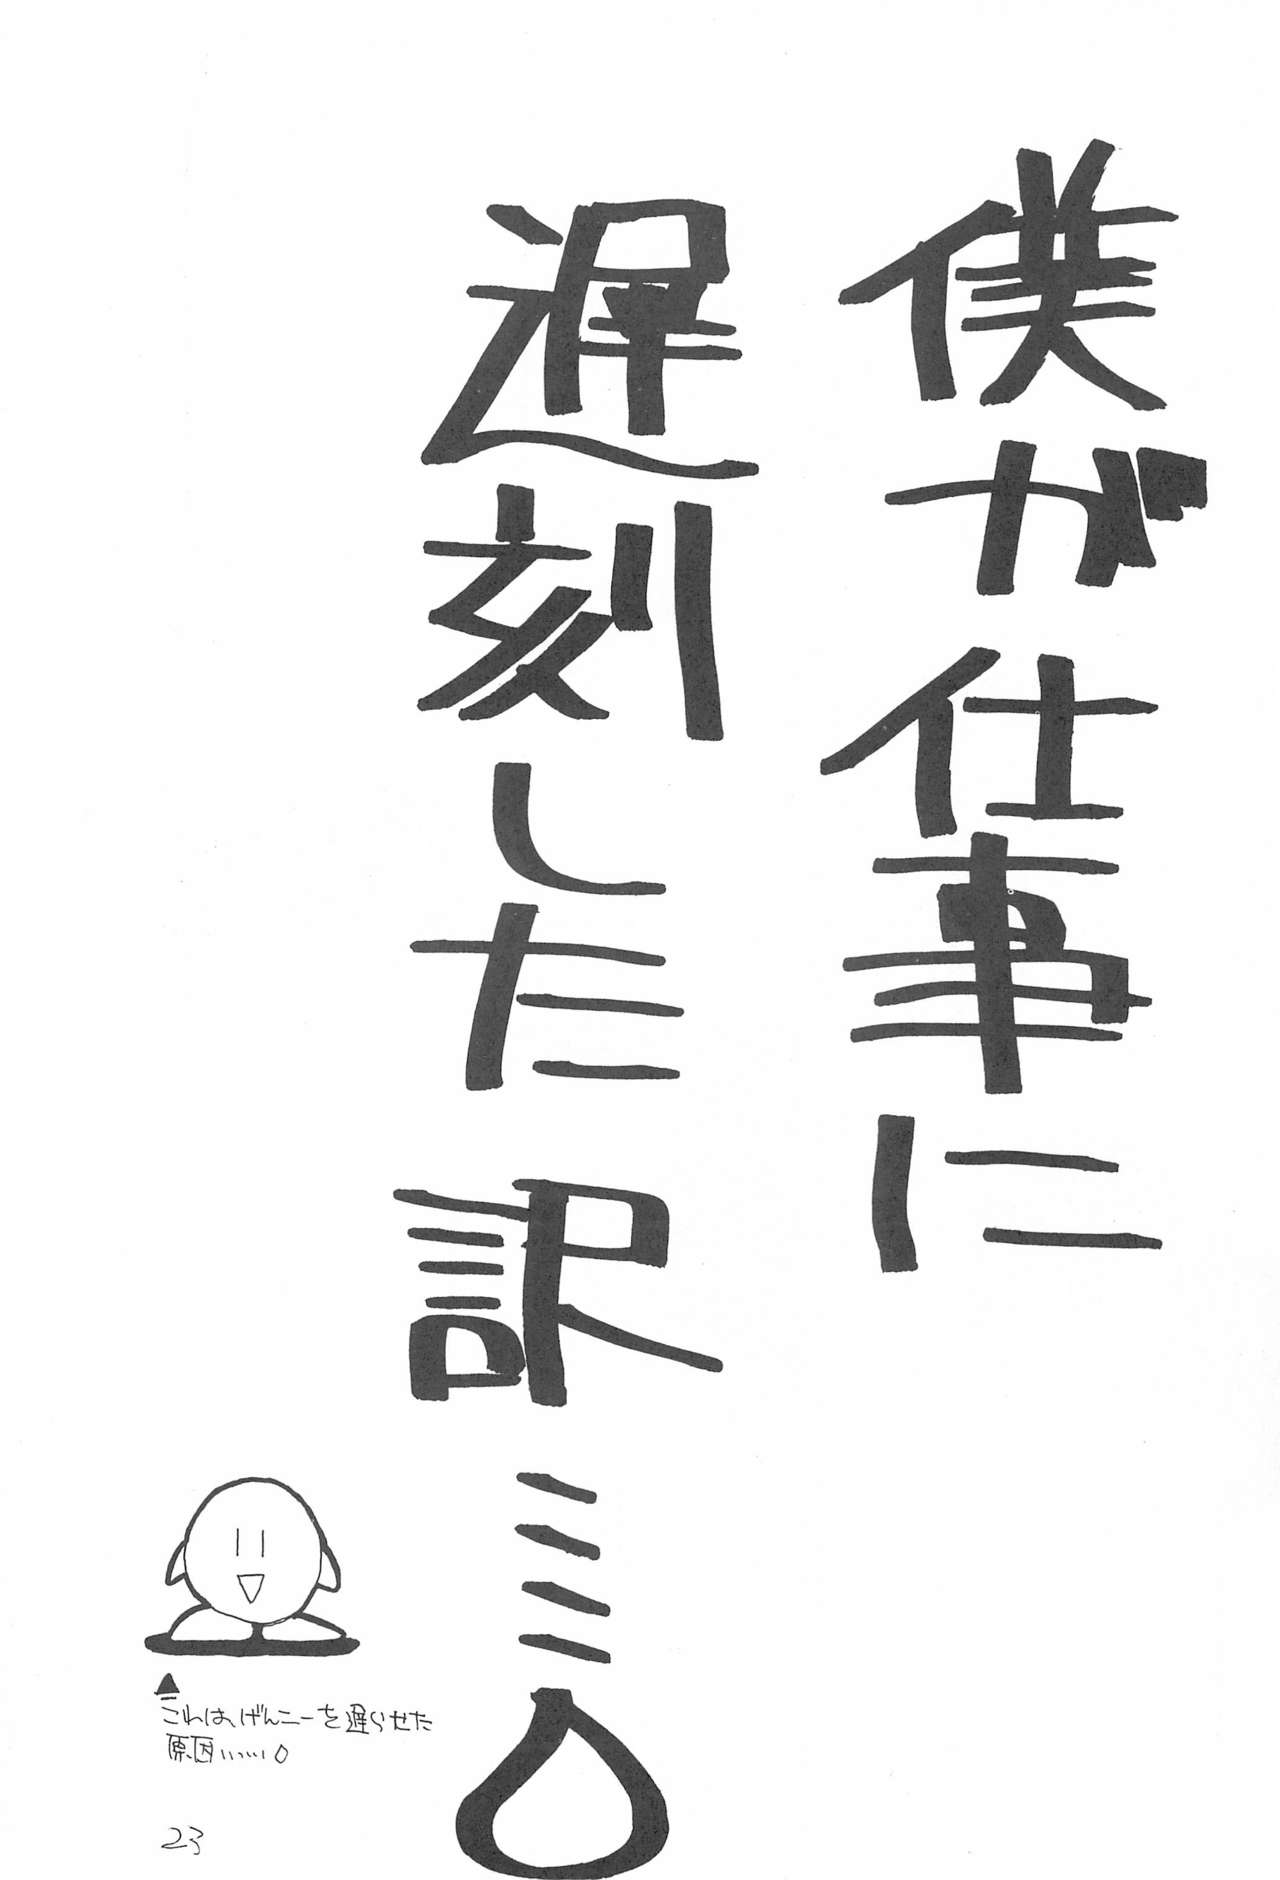 僕が仕事に
遅刻した訳……。
これは、げんニーを遅らせた
原因……。
23